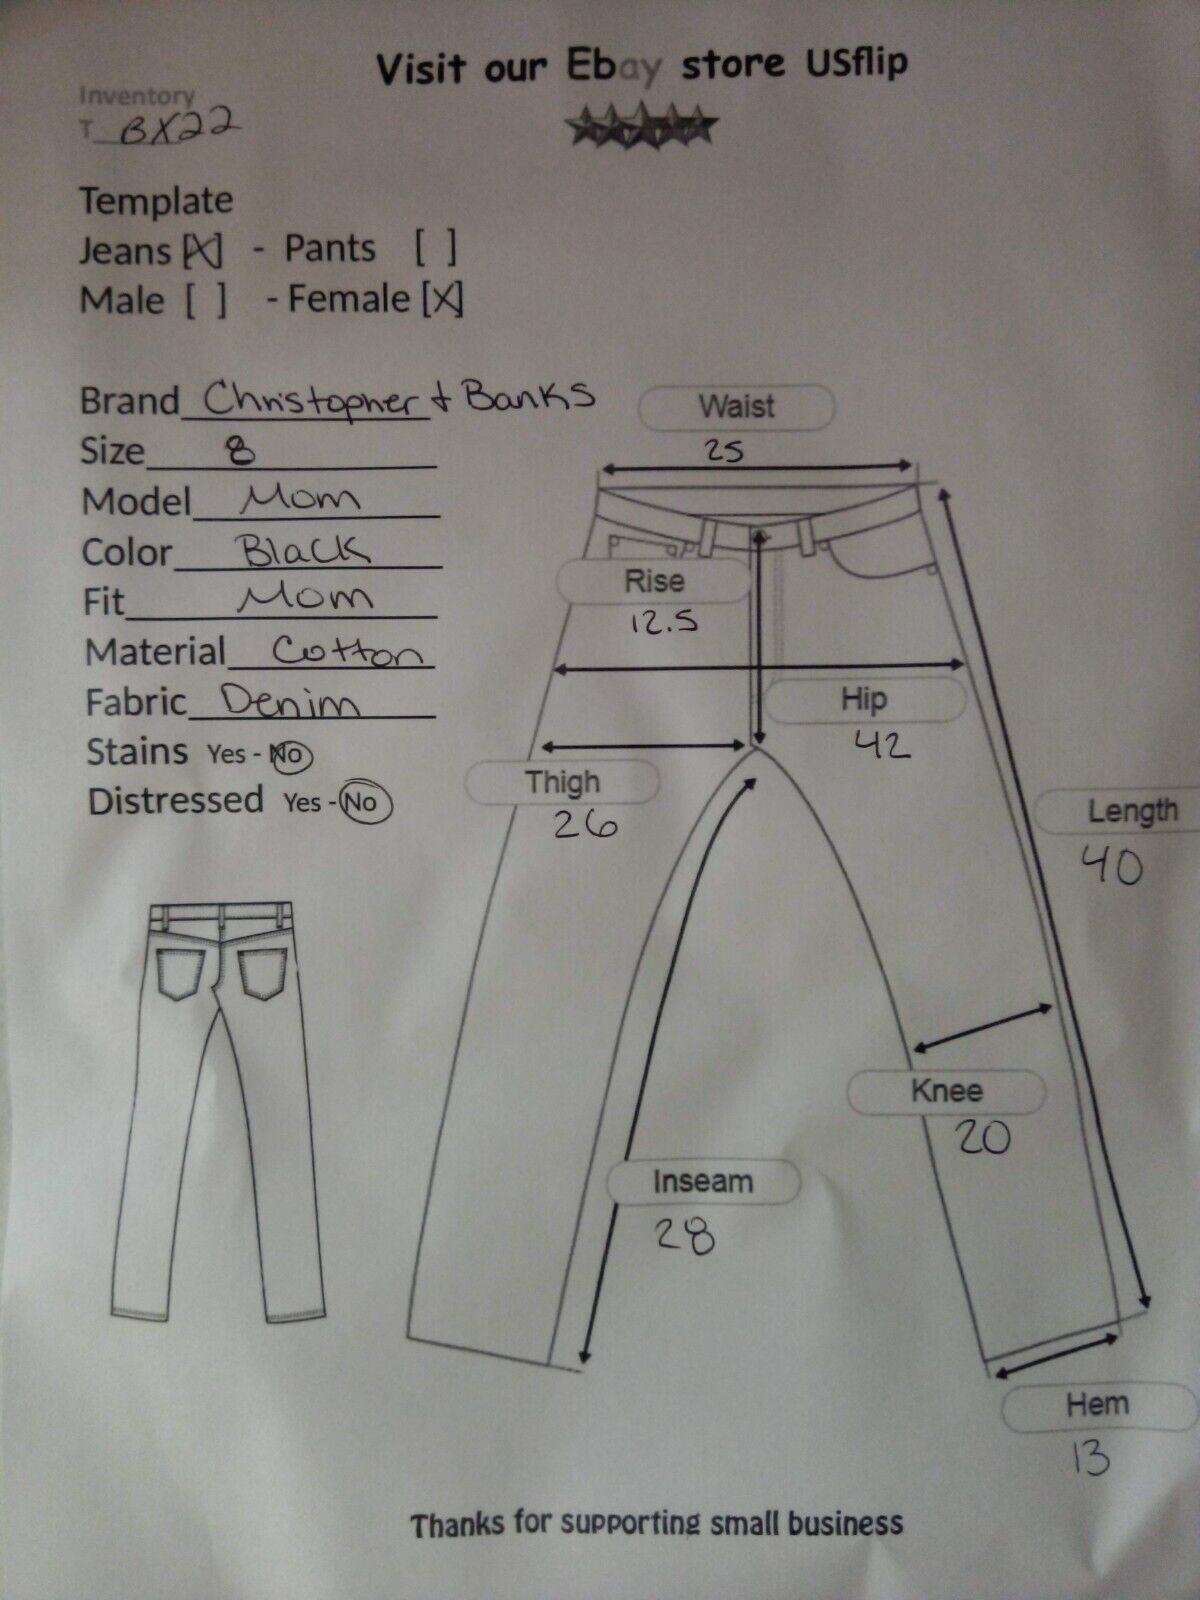 Visit our Ebay store USflip
Inventory
T BX22
Template
Jeans [X] - Pants [ ]
Male [ ] - Female [X]
Brand Christopher + Banks
Size 8
Model Mom
Color Black
Fit Mom
Material Cotton
Fabric Denim
Stains Yes - No
Distressed Yes - No
Waist
25
Rise
12.5
Hip
42
Thigh
26
Length
40
Knee
20
Inseam
28
Hem
13
Thanks for supporting small business